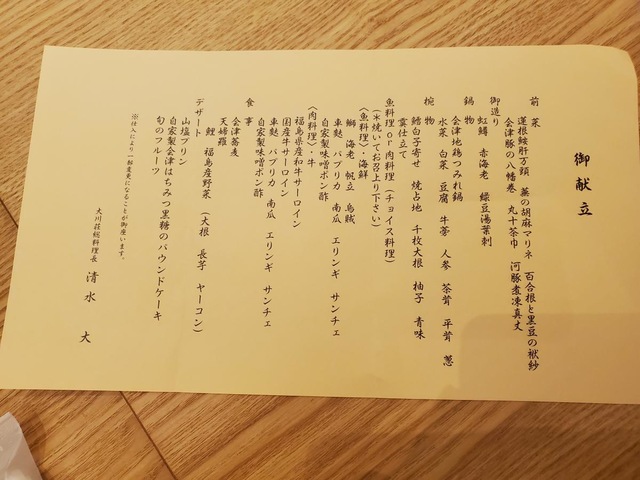 御献立
前菜
蓮根鮟肝万頭　蕪の胡麻マリネ　百合根と黒豆の袱紗
会津豚の八幡巻　丸十茶巾　河豚煮凍真丈
御造り
虹鱒　赤海老　緑豆湯葉刺
鍋物
会津地鶏つみれ鍋
水菜　白菜　豆腐　牛蒡　人参　茶茸　平茸　葱
椀物
鱈白子寄せ　焼占地　千枚大根　柚子　青味
霙仕立て
魚料理 or 肉料理（チョイス料理）
（※焼いてお召上り下さい）
〈魚料理〉・海鮮
鰤　海老　帆立　烏賊
車麩　パプリカ　南瓜　エリンギ　サンチェ
自家製味噌ポン酢
〈肉料理〉・牛
福島県産和牛サーロイン
国産牛サーロイン
車麩　パプリカ　南瓜　エリンギ　サンチェ
自家製味噌ポン酢
食事
会津蕎麦
天婦羅
鯉　福島産野菜　（大根　長芋　ヤーコン）
デザート
山塩プリン
自家製会津はちみつ黒糖のパウンドケーキ
旬のフルーツ
※仕入により一部変更になることが御座います。
大川荘総料理長　清水　大